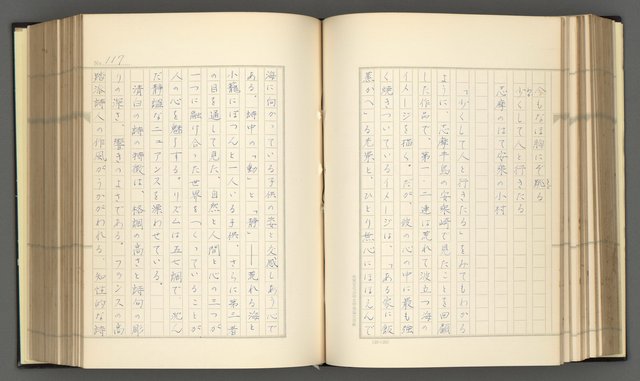 今もなほ胸にぞ跳る
少くして人と行きたる
志摩のはて安乗の小村
「少くして人と行きたる」をみてもわかる
ように、志摩半島の安乗崎で見たことを回顧
した作品で、第一、二連は荒れて波立つ海の
イメージを描く。だが、彼の心の中に最も強
く焼きついているイメージは、「ある家に飯
蒸かへ」る光景と、ひとり無心にほほえんで
No. 117
海に向かっている子供の姿と交感しあう心で
ある。詩中の「動」と「静」——荒れる海と
小籠にぽつんと一人いる子供、さらに第三者
の目を通して見た、自然と人間と心の三つが
一つに融け合った世界をつくっていることが
人の心を魅了する。リズムは五七調で、沈ん
だ静謐なニュアンスを漂わせている。
清白の詩の特徴は、格調の高さと詩句の彫
りの深さ、響きのよさである。フランスの高
踏派詩人の作風がうかがわれる、知性的な詩